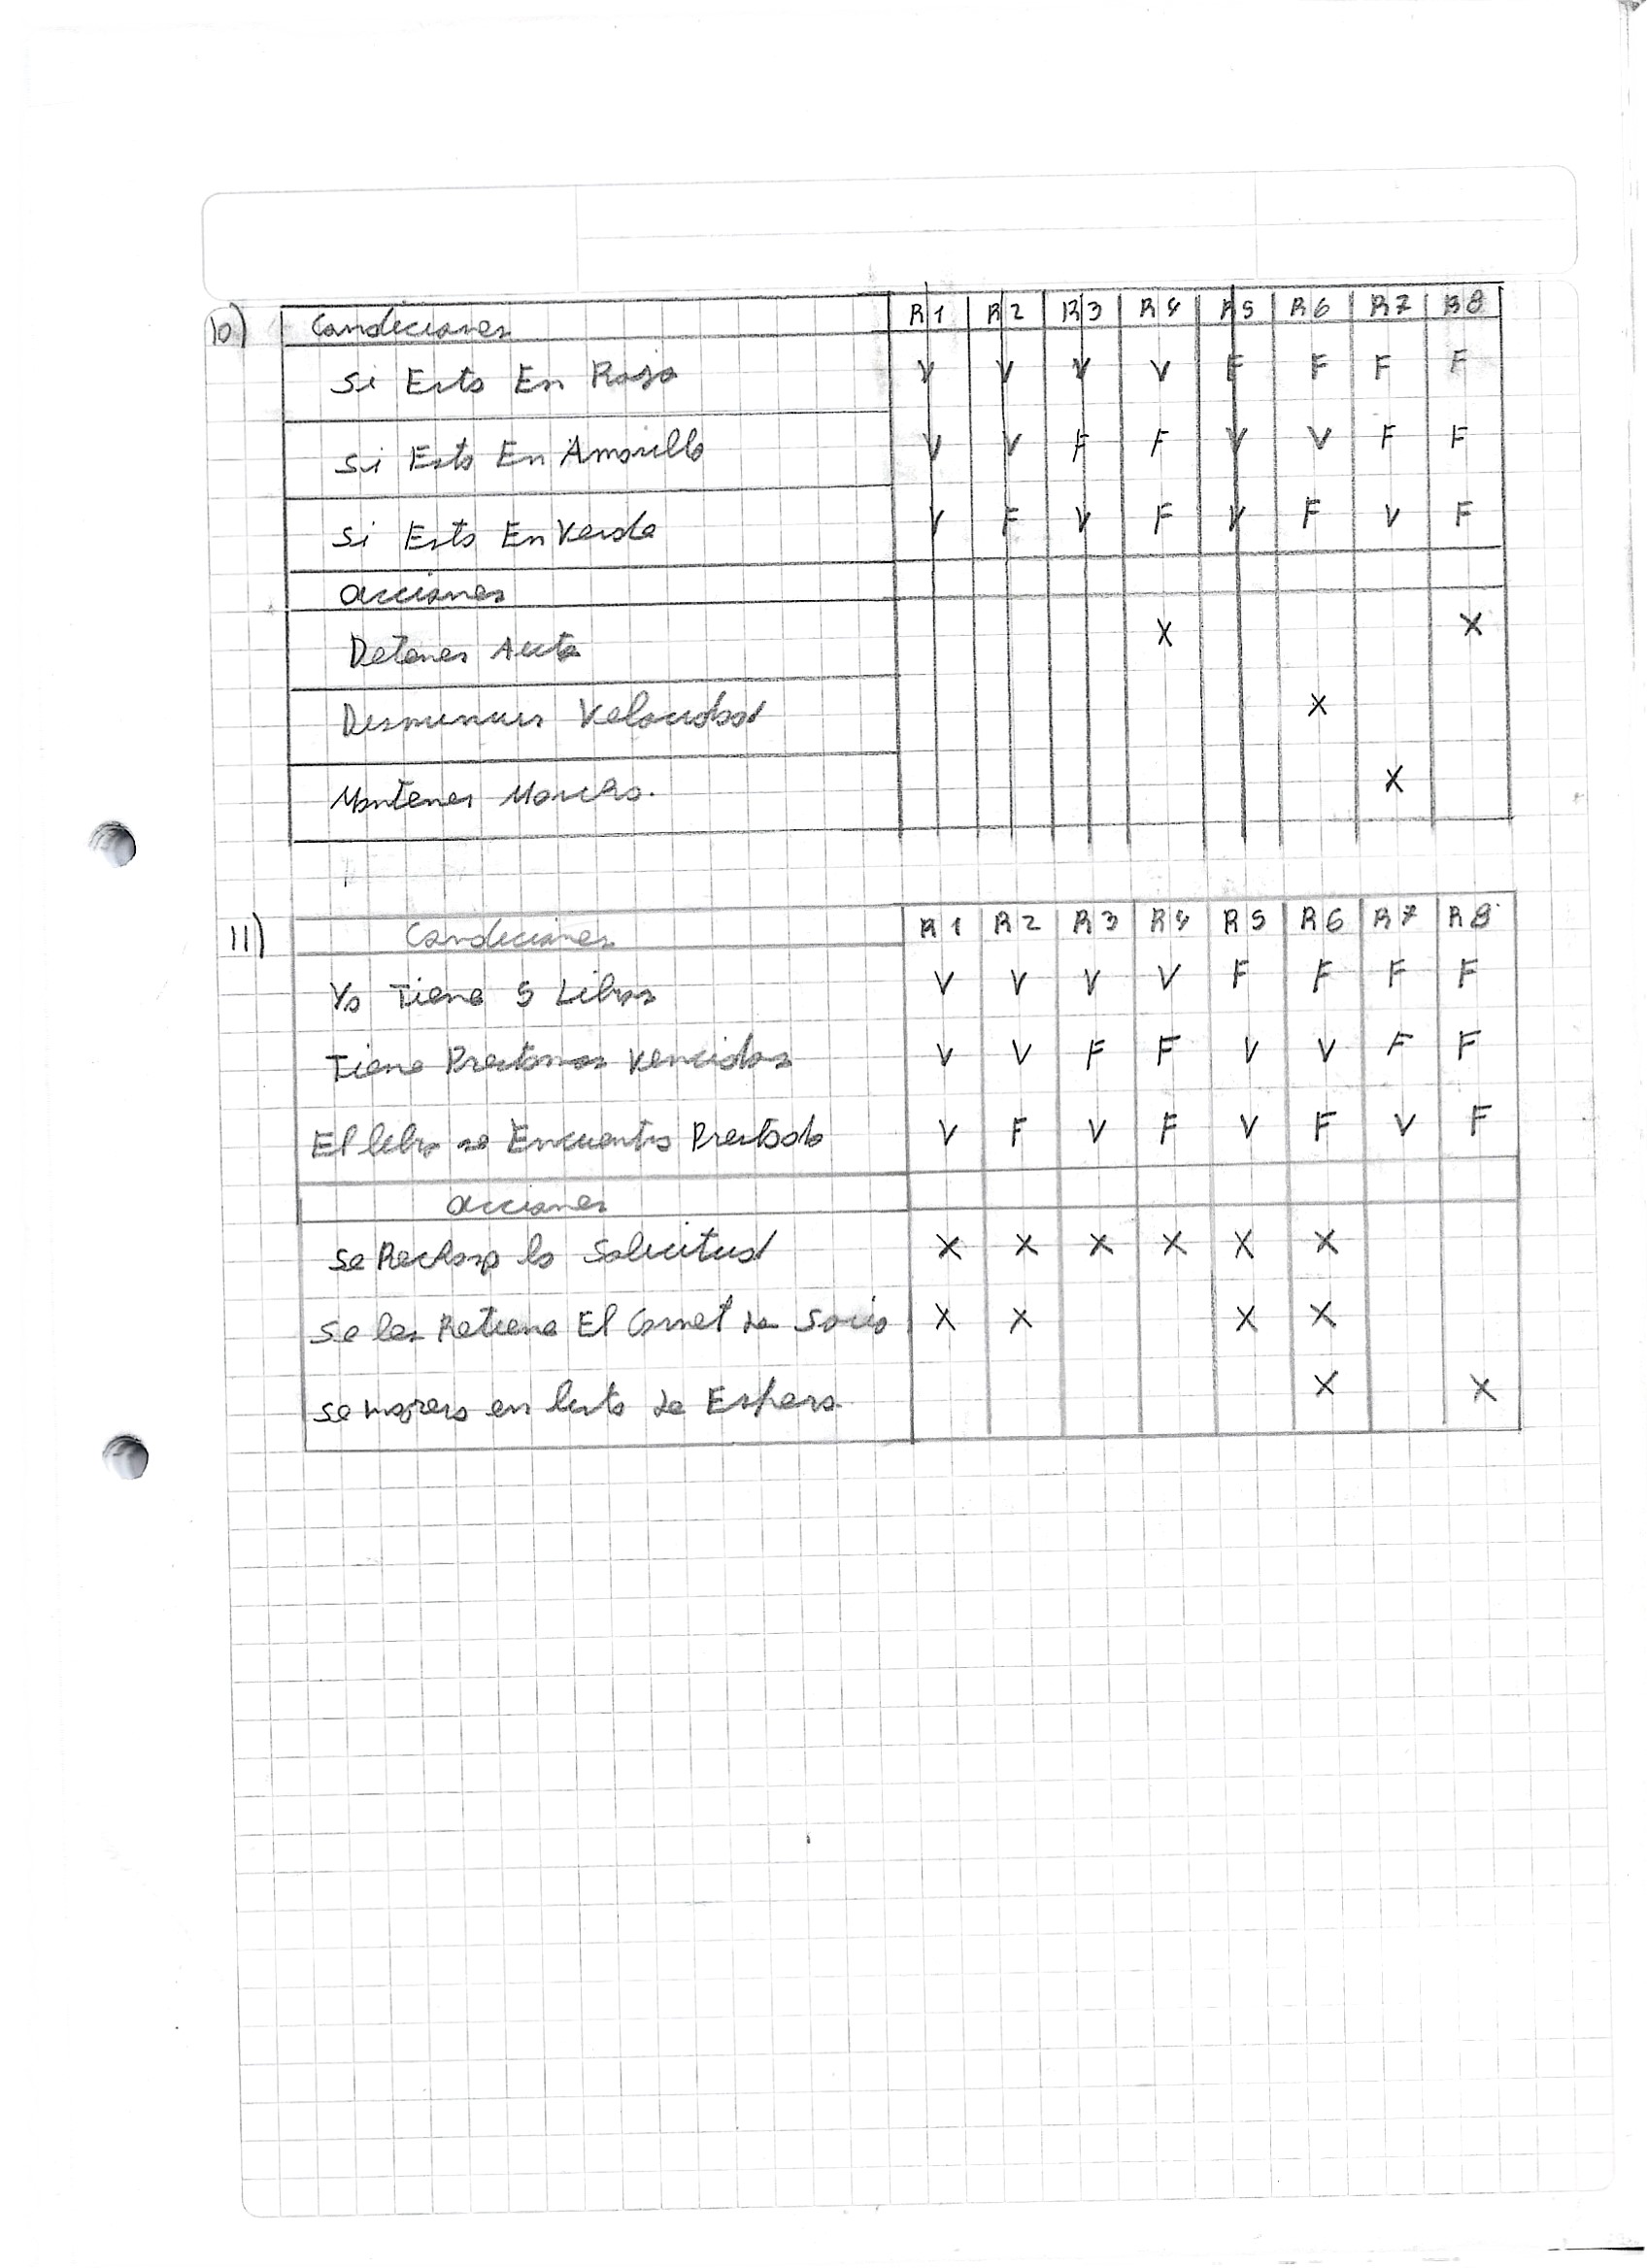 10) Condiciones R1 R2 R3 R4 R5 R6 R7 R8
Si Esta En Rojo V V V V F F F F
Si Esta En Amarillo V V F F V V F F
Si Esta En Verde V F V F V F V F
acciones
Detener Auto X X
Disminuir Velocidad X
Mantener Marcha. X
11) Condiciones R1 R2 R3 R4 R5 R6 R7 R8
Ya Tiene 5 Libros V V V V F F F F
Tiene Prestamos Vencidos V V F F V V F F
El libro se Encuentra Prestado V F V F V F V F
acciones
Se Rechaza la Solicitud X X X X X X
Se les Retiene El Carnet de Socio X X X X
Se en lista de Espera. X X